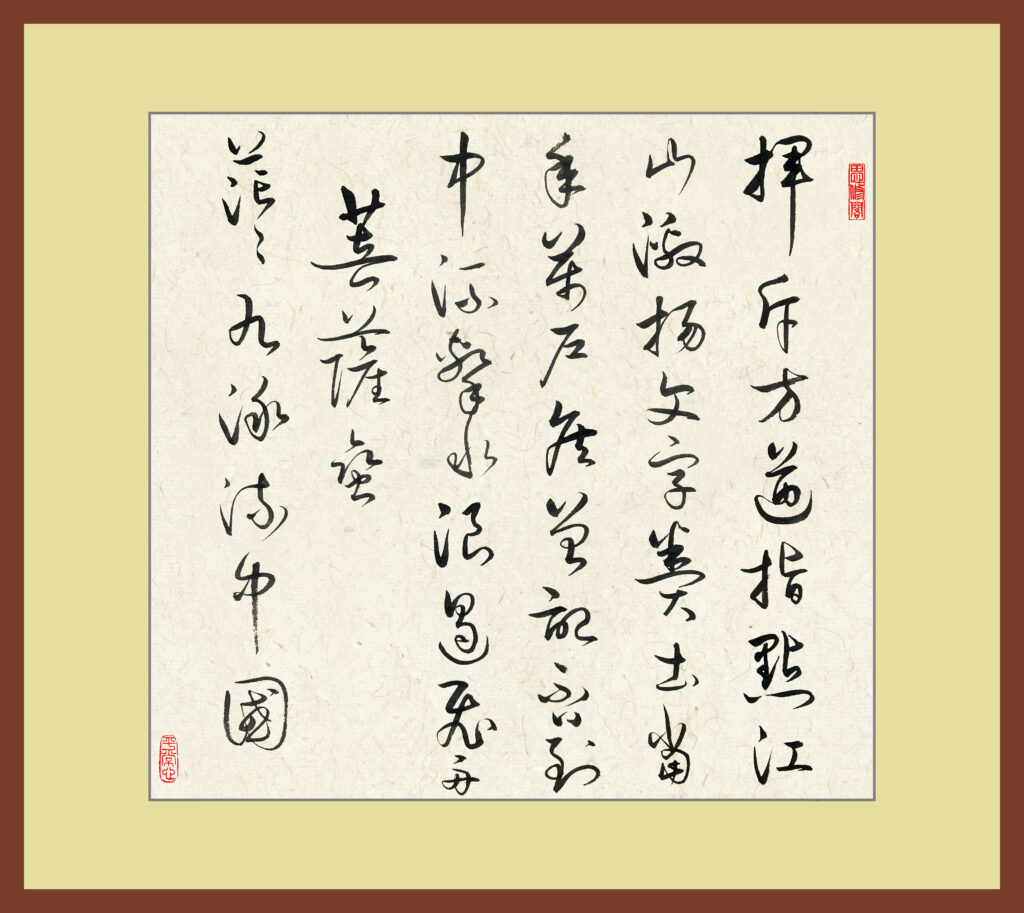 揮斥方遒指點江
山激揚文字糞土當
年萬戶侯曾記否到
中流擊水浪遏飛舟
菩薩蠻
茫〻九派流中國
平常心